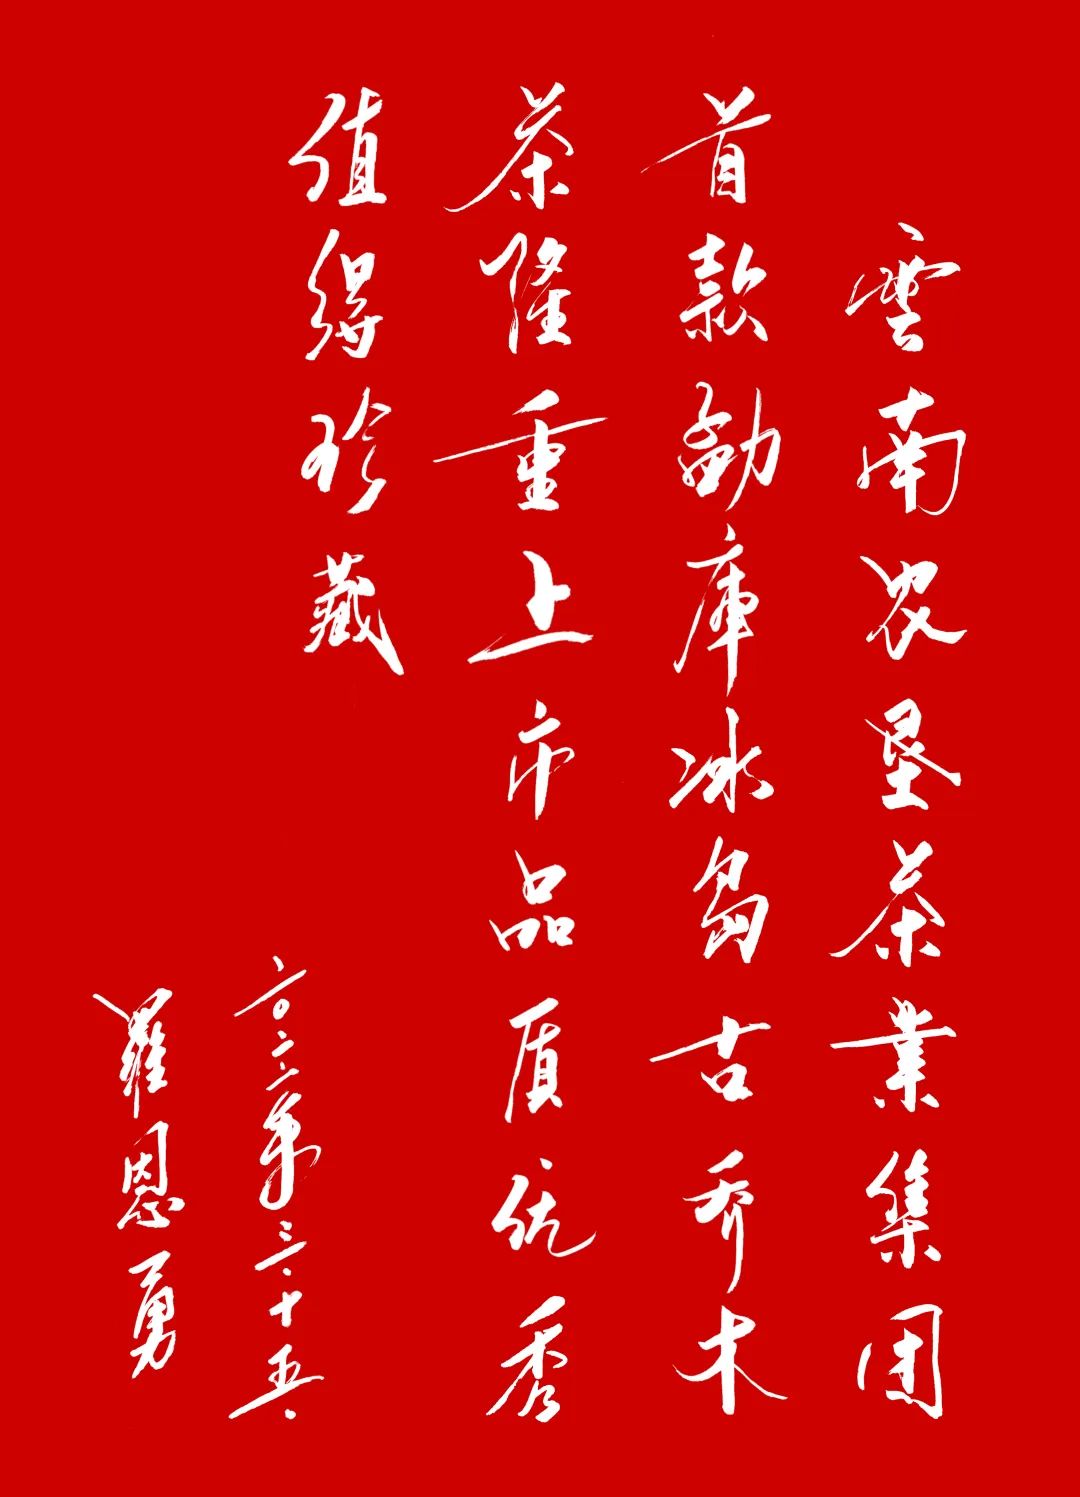 雲南农垦茶業集团
首款勐庫冰島古乔木
茶隆重上市品质优秀
值得珍藏
二〇二二年三.十五.
羅恩勇